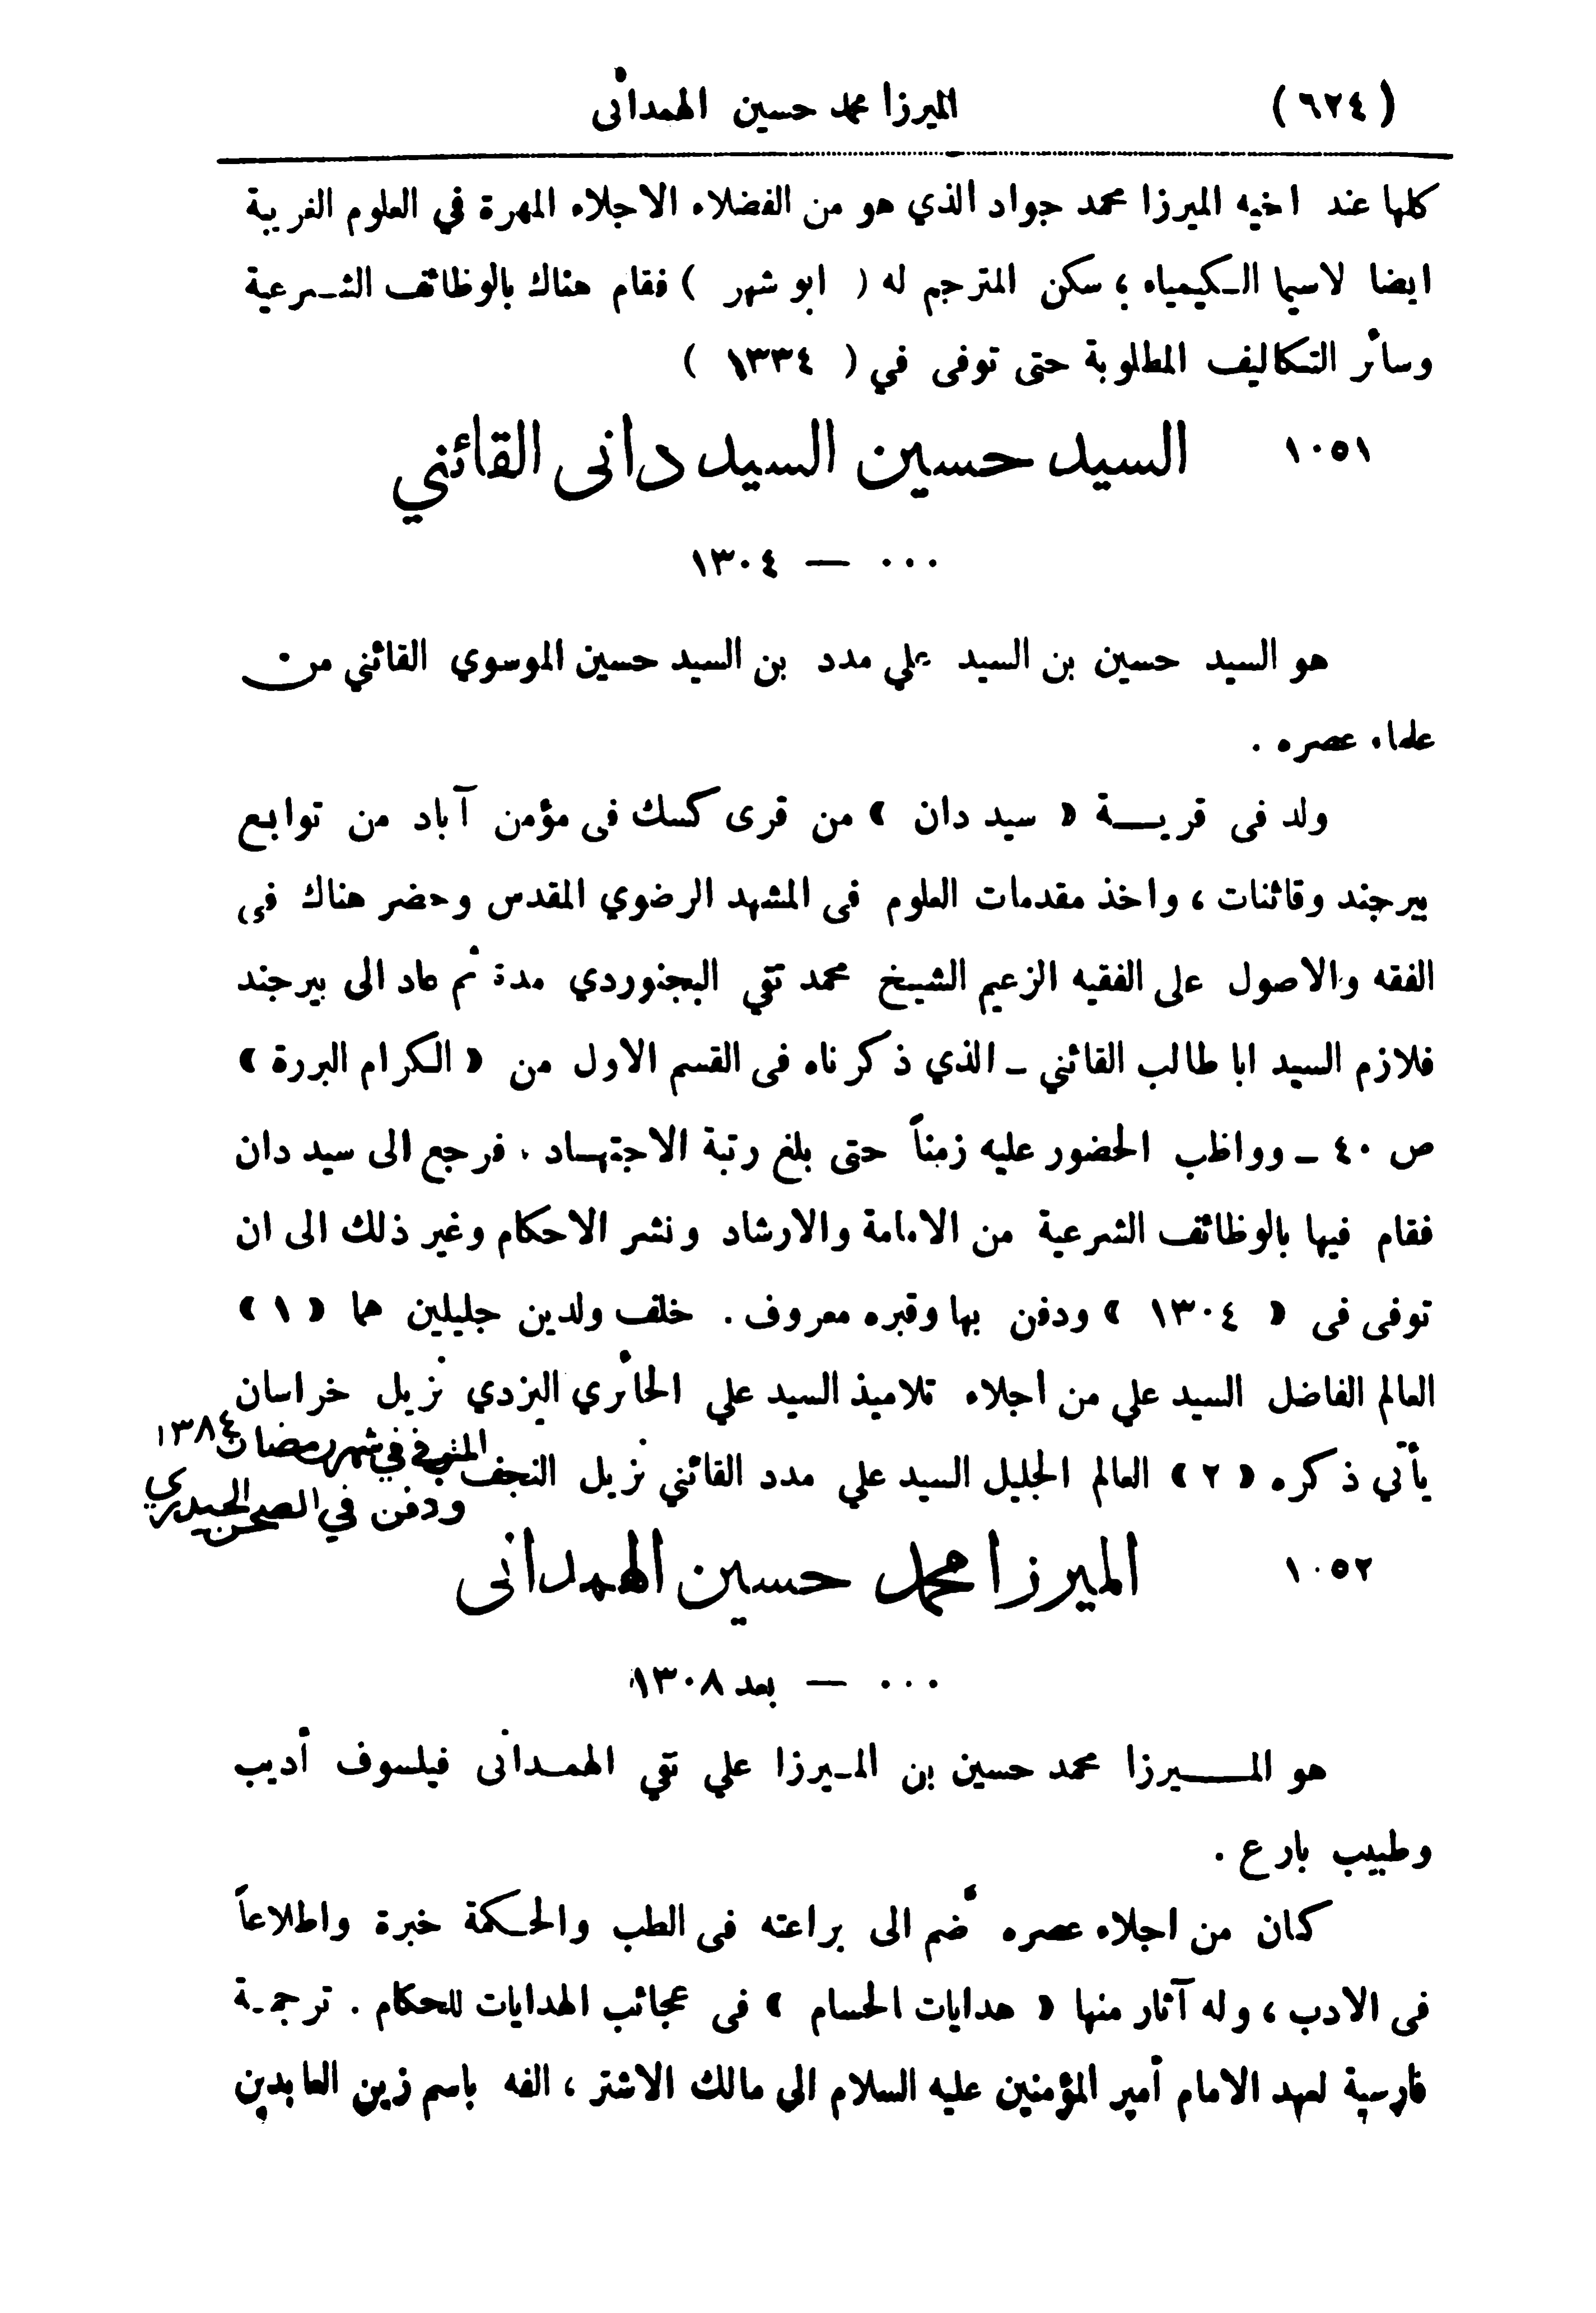 (٦٢٤) الميرزا محمد حسين الهمدانى
كلها عند اخيه الميرزا محمد جواد الذي هو من الفضلاء الاجلاء المهرة في العلوم الغريبة
ايضا لاسيما الكيمياء ؛ سكن المترجم له ( ابو شهر ) فقام هناك بالوظائف الشرعية
وسائر التكاليف المطلوبة حتى توفى في ( ١٣٣٤ )
١٠٥١ السيد حسين السيد دانى القائني
٠٠٠ — ١٣٠٤
هو السيد حسين بن السيد علي مدد بن السيد حسين الموسوي القائني من
علماء عصره .
ولد فى قرية « سيد دان » من قرى كسك فى مؤمن آباد من توابع
بيرجند وقائنات ، واخذ مقدمات العلوم فى المشهد الرضوي المقدس وحضر هناك فى
الفقه والاصول على الفقيه الزعيم الشيخ محمد تقي البجنوردي مدة ثم عاد الى بيرجند
فلازم السيد ابا طالب القائني ـ الذي ذكرناه فى القسم الاول من « الكرام البررة »
ص ٤٠ ـ وواظب الحضور عليه زمناً حتى بلغ رتبة الاجتهاد ، فرجع الى سيد دان
فقام فيها بالوظائف الشرعية من الامامة والارشاد ونشر الاحكام وغير ذلك الى ان
توفى فى « ١٣٠٤ » ودفن بها وقبره معروف . خلف ولدين جليلين هما « ١ »
العالم الفاضل السيد علي من اجلاء تلاميذ السيد علي الحائري اليزدي نزيل خراسان
يأتي ذكره « ٢ » العالم الجليل السيد علي مدد القائني نزيل النجف
المتوفى في شهر رمضان ١٣٨٤
ودفن في الصحن الحيدري
١٠٥٢ الميرزا محمد حسين الهمدانى
٠٠٠ — بعد ١٣٠٨
هو الميرزا محمد حسين بن الميرزا علي تقي الهمدانى فيلسوف أديب
وطبيب بارع .
كان من اجلاء عصره ضم الى براعته فى الطب والحكمة خبرة واطلاعاً
فى الادب ، وله آثار منها « هدايات الحسام » فى عجائب الهدايات للحكام . ترجمة
فارسية لعهد الامام أمير المؤمنين عليه السلام الى مالك الاشتر ، الفه باسم زين العابدين